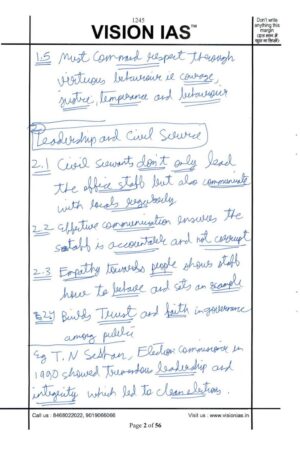 1245
VISION IAS™
Don't write
anything this
margin
1.5 Must Command respect through
virtuous behaviour ie courage,
justice, temperance and behaviour
2 Leadership and Civil Service
2.1 Civil servants don't only lead
the office staff but also communicate
with locals regularly
2.2 Effective communication ensures the
staff is accountable and not corrupt
2.3 Empathy towards people shows staff
how to behave and sets an example
2.4 Builds Trust and faith in governance
among public
Eg T.N Seshan, Election commissioner in
1990 showed tremendous leadership and
integrity which led to clean elections.
Call us : 8468022022, 9019066066
Visit us : www.visionias.in
Page 2 of 56